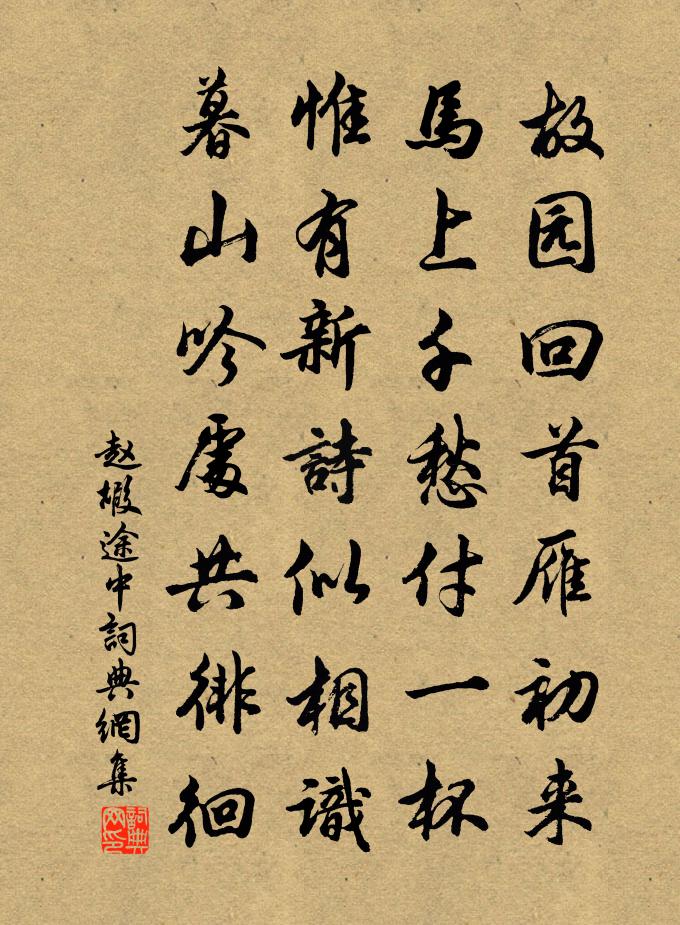 故园回首雁初来
馬上千愁付一杯
惟有新詩似相識
暮山吟處共徘徊
赵嘏途中詞典網集
詞典網印